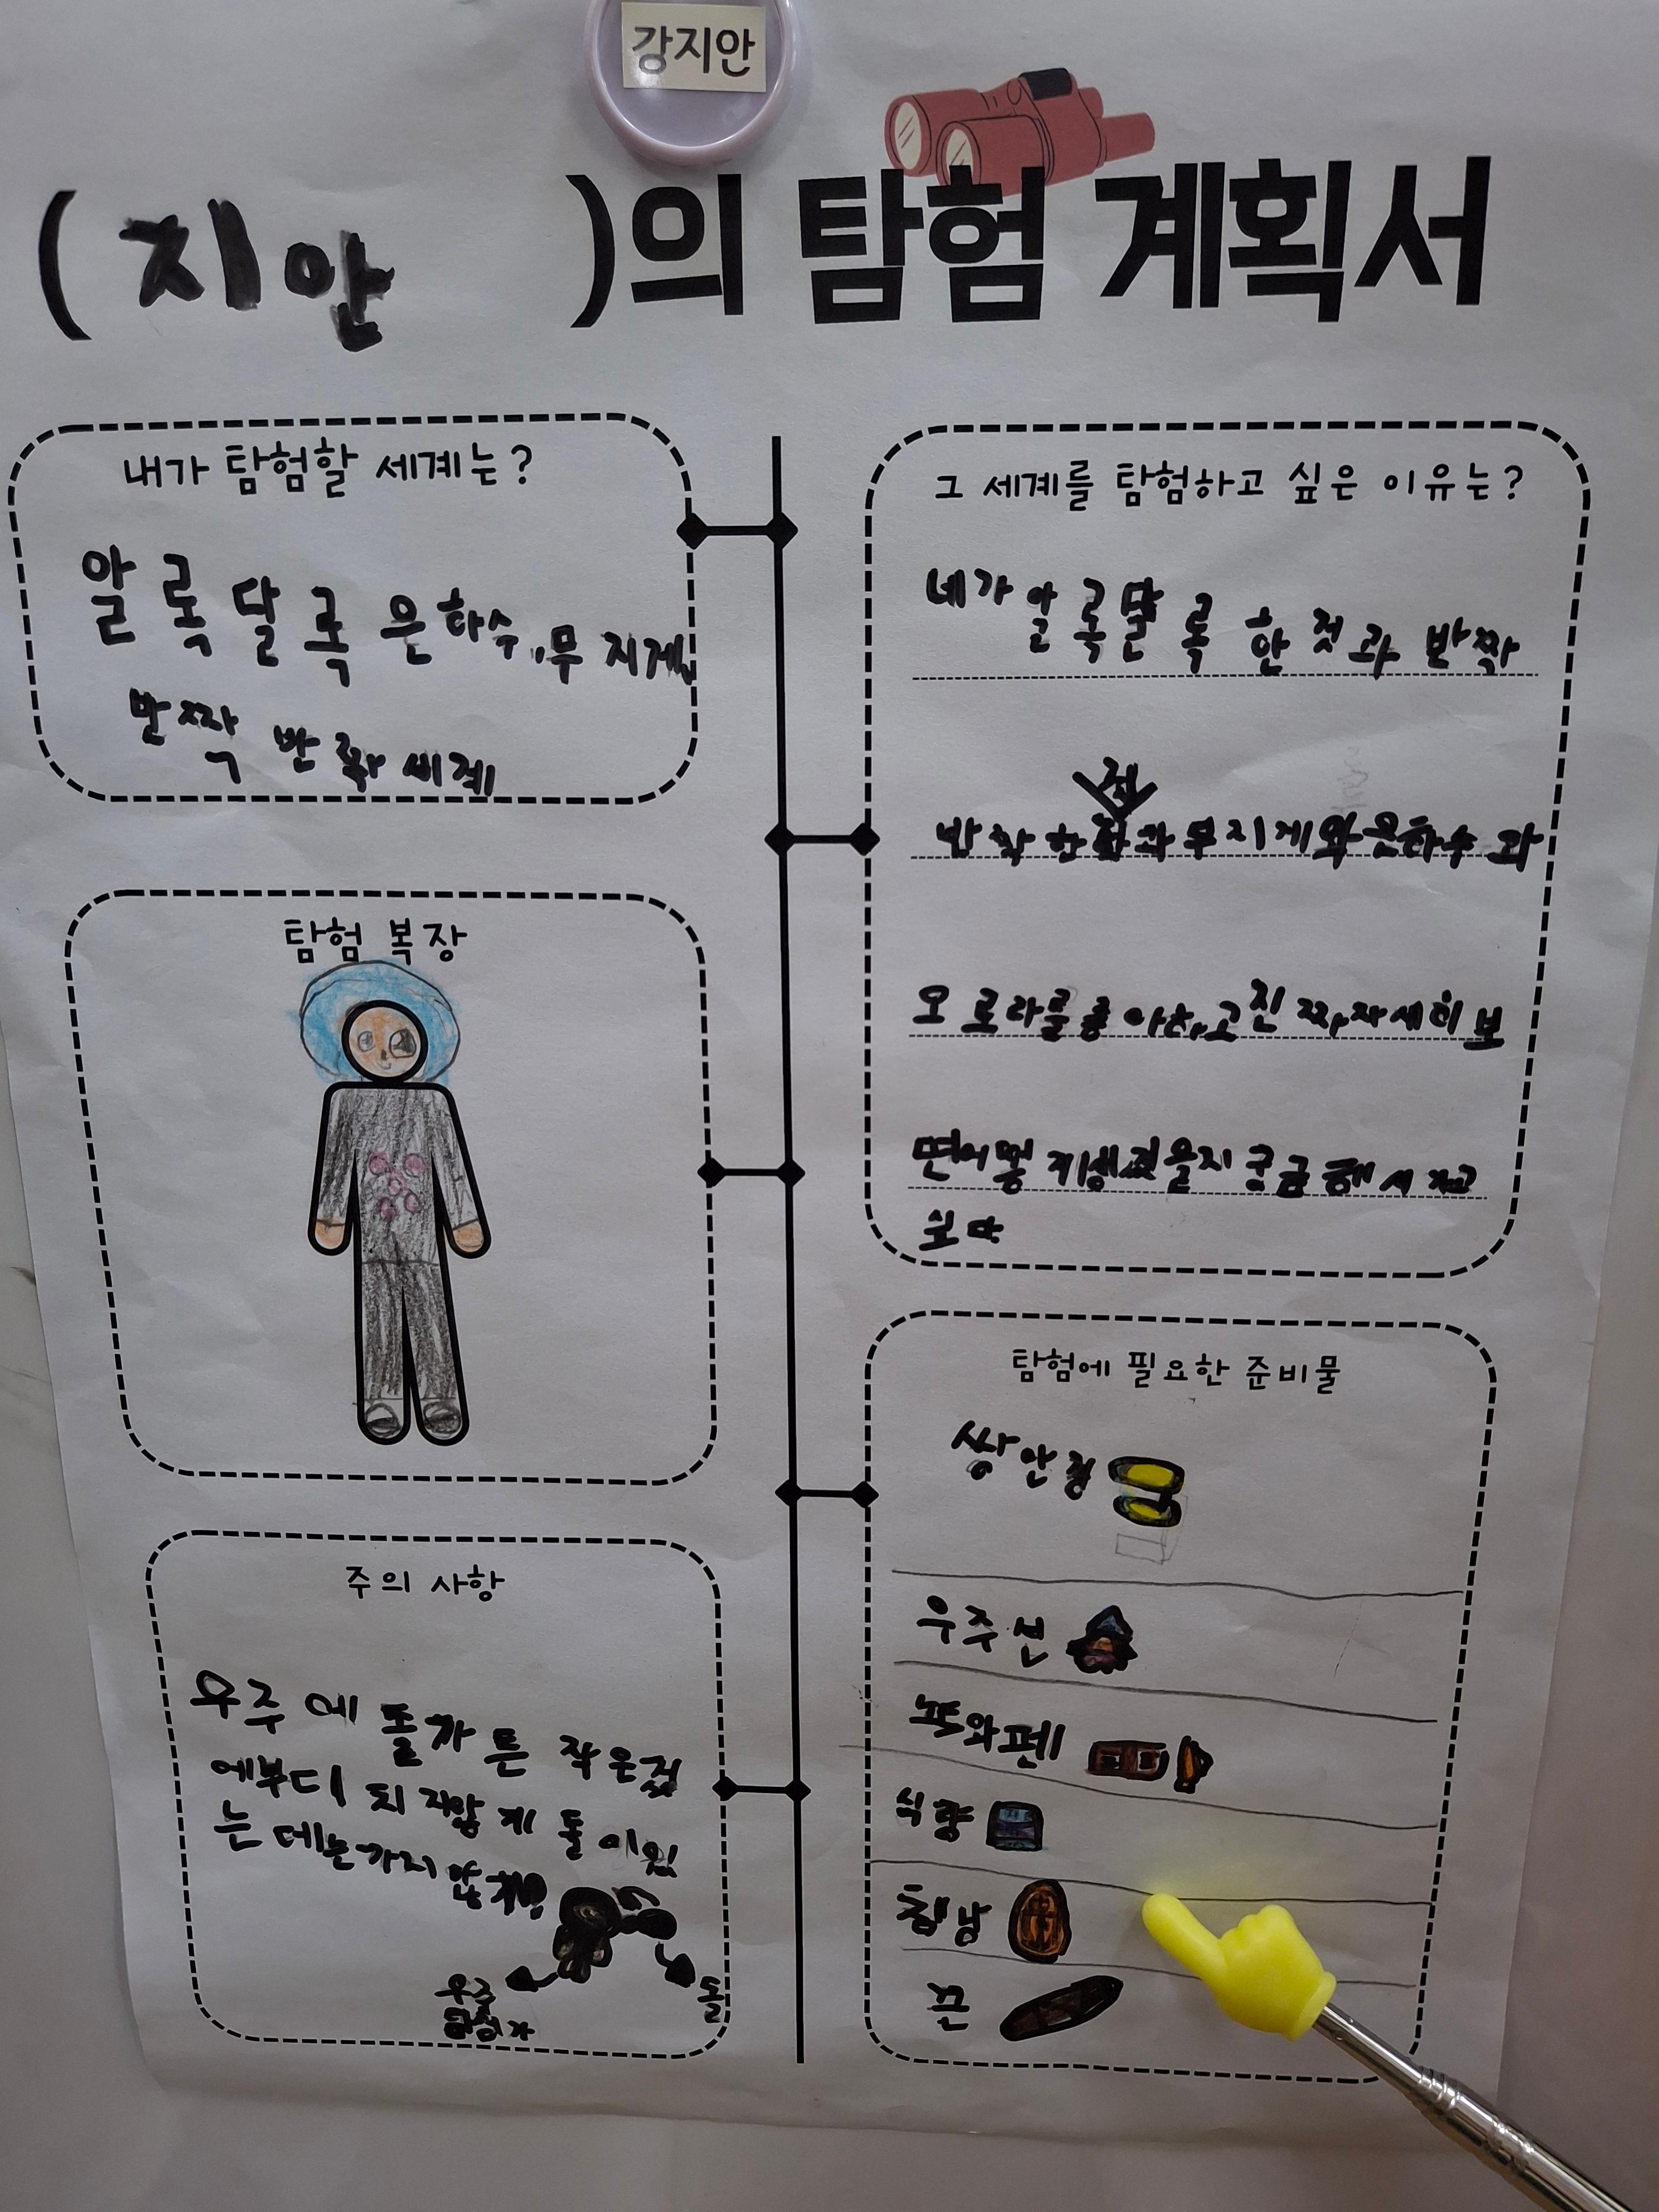 강지안
(지안)의 탐험 계획서
내가 탐험할 세계는?
알록달록 은하수, 무지게,
반짝 반짝 세계
그 세계를 탐험하고 싶은 이유는?
네가 알록달록 한 것과 반짝
반짝 한 것과 무지게와 은하수와
오로라를 좋아하고 진짜 자세히 보
면 어떻게 생겼을지 궁금해서 가고
싶다
탐험 복장
탐험에 필요한 준비물
쌍안경
우주선
책와펜
식량
침낭
끈
주의 사항
우주에 돌가튼 작은것
에부디 치지않게 돌이있
는데는가지않기!!
우주
탐험가
돌